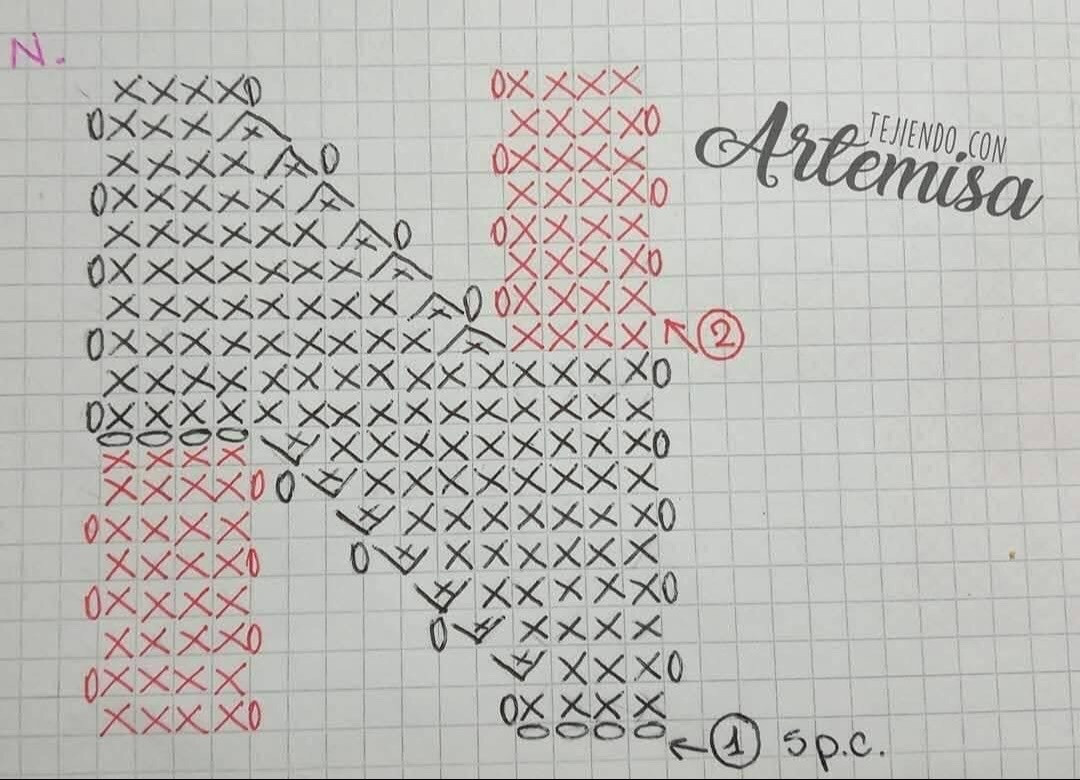 N.
TEJIENDO CON
Artemisa
2
1 5 p.c.